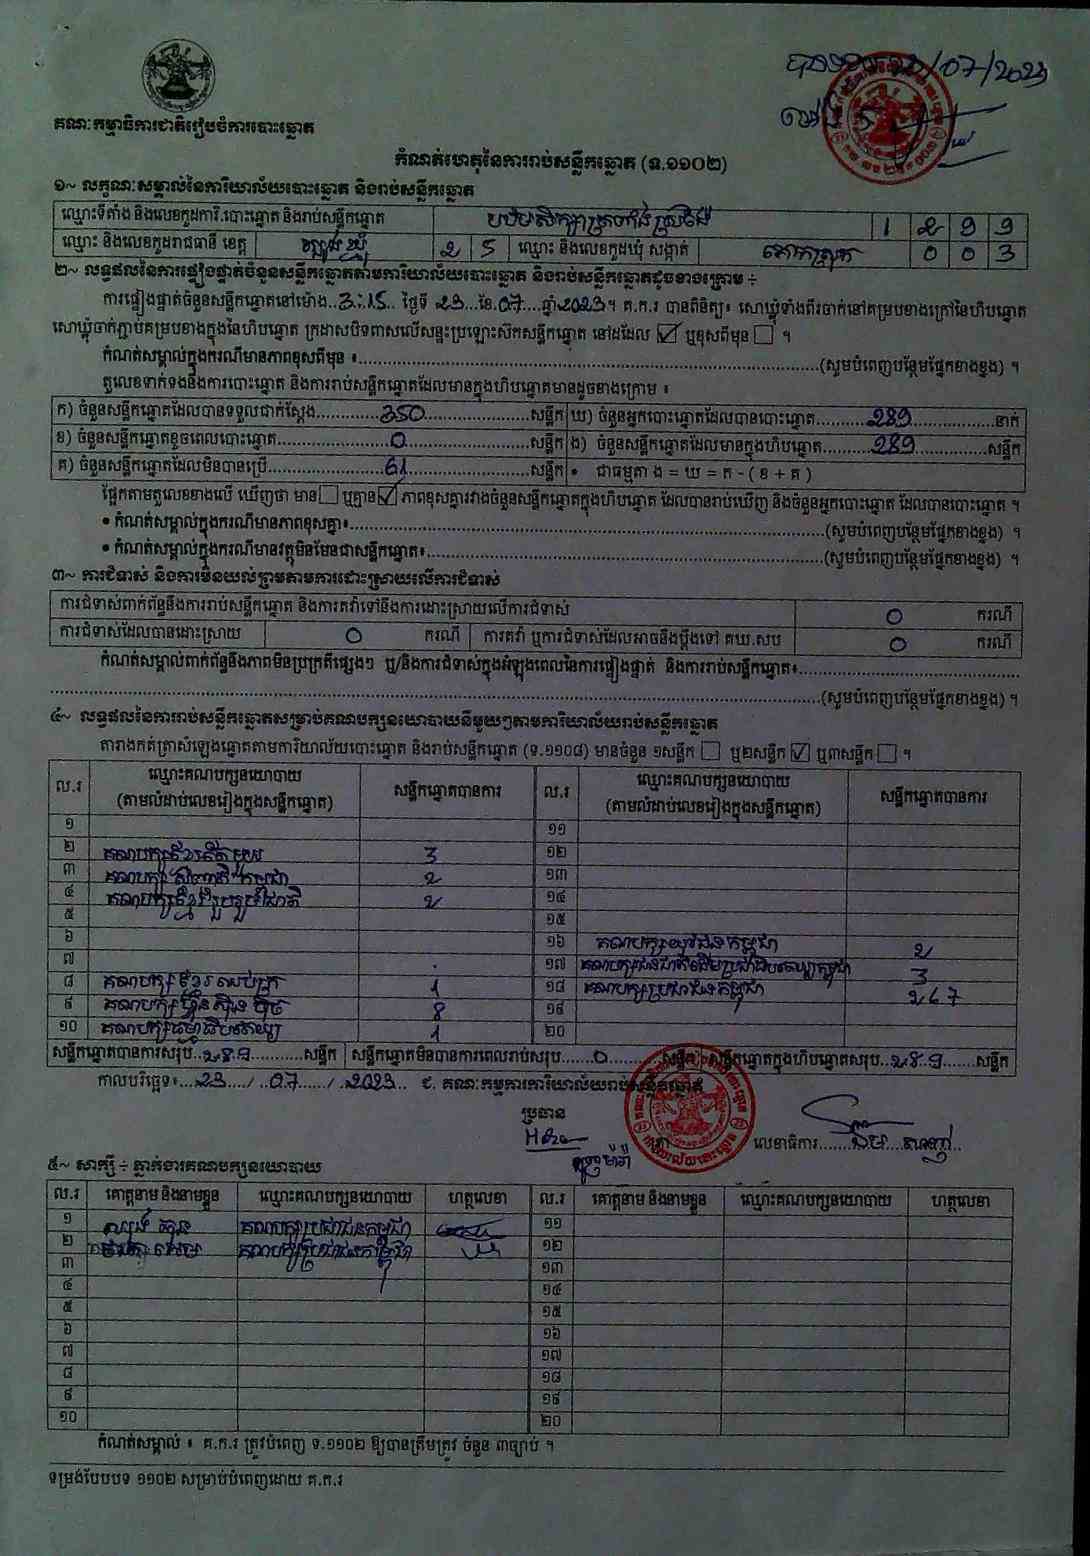 បានទទួល 23/07/2023
គណៈកម្មាធិការជាតិរៀបចំការបោះឆ្នោត
កំណត់ហេតុនៃការរាប់សន្លឹកឆ្នោត (ទ.១១០២)
១~ លក្ខណៈសម្គាល់នៃការិយាល័យបោះឆ្នោត និងរាប់សន្លឹកឆ្នោត
ឈ្មោះទីតាំង និងលេខកូដការិ.បោះឆ្នោត និងរាប់សន្លឹកឆ្នោត 1 2 9 9
ឈ្មោះ និងលេខកូដរាជធានី ខេត្ត ត្បូងឃ្មុំ 2 5 ឈ្មោះ និងលេខកូដឃុំ សង្កាត់ 0 0 3
២~ លទ្ធផលនៃការផ្ទៀងផ្ទាត់ចំនួនសន្លឹកឆ្នោតតាមការិយាល័យបោះឆ្នោត និងរាប់សន្លឹកឆ្នោតដូចខាងក្រោម ÷
ការផ្ទៀងផ្ទាត់ចំនួនសន្លឹកឆ្នោតនៅម៉ោង..3:15.. ថ្ងៃទី 23 ខែ.07....ឆ្នាំ 2023។ គ.ក.រ បានពិនិត្យ៖ សោឃ្លុំទាំងពីរចាក់នៅគម្របខាងក្រៅនៃហិបឆ្នោត
សោឃ្លុំចាក់ភ្ជាប់គម្របខាងក្នុងនៃហិបឆ្នោត ក្រដាសបិទពាសលើសន្ទះប្រឡោះស៊កសន្លឹកឆ្នោត នៅដដែល ☑ ឬខុសពីមុន ☐ ។
កំណត់សម្គាល់ក្នុងករណីមានភាពខុសពីមុន ៖..........(សូមបំពេញបន្ថែមផ្នែកខាងខ្នង) ។
តួលេខទាក់ទងនឹងការបោះឆ្នោត និងការរាប់សន្លឹកឆ្នោតដែលមានក្នុងហិបឆ្នោតមានដូចខាងក្រោម ៖
ក) ចំនួនសន្លឹកឆ្នោតដែលបានទទួលជាក់ស្តែង..........350..........សន្លឹក ឃ) ចំនួនអ្នកបោះឆ្នោតដែលបានបោះឆ្នោត..........289..........នាក់
ខ) ចំនួនសន្លឹកឆ្នោតខូចពេលបោះឆ្នោត..........0..........សន្លឹក ង) ចំនួនសន្លឹកឆ្នោតដែលមានក្នុងហិបឆ្នោត..........289..........សន្លឹក
គ) ចំនួនសន្លឹកឆ្នោតដែលមិនបានប្រើ..........61..........សន្លឹក • ជាធម្មតា ង = ឃ = ក - ( ខ + គ )
ផ្អែកតាមតួលេខខាងលើ ឃើញថា មាន ☐ ឬគ្មាន ☑ ភាពខុសគ្នារវាងចំនួនសន្លឹកឆ្នោតក្នុងហិបឆ្នោត ដែលបានរាប់ឃើញ និងចំនួនអ្នកបោះឆ្នោត ដែលបានបោះឆ្នោត ។
• កំណត់សម្គាល់ក្នុងករណីមានភាពខុសគ្នា៖..........(សូមបំពេញបន្ថែមផ្នែកខាងខ្នង) ។
• កំណត់សម្គាល់ក្នុងករណីមានវត្ថុមិនមែនជាសន្លឹកឆ្នោត៖..........(សូមបំពេញបន្ថែមផ្នែកខាងខ្នង) ។
៣~ ការជំទាស់ និងការមិនយល់ព្រមតាមការដោះស្រាយលើការជំទាស់
ការជំទាស់ពាក់ព័ន្ធនឹងការរាប់សន្លឹកឆ្នោត និងការតវ៉ាទៅនឹងការដោះស្រាយលើការជំទាស់ 0 ករណី
ការជំទាស់ដែលបានដោះស្រាយ 0 ករណី ការតវ៉ា ឬការជំទាស់ដែលអាចនឹងប្តឹងទៅ គឃ.សប 0 ករណី
កំណត់សម្គាល់ពាក់ព័ន្ធនឹងភាពមិនប្រក្រតីផ្សេងៗ ឬ/និងការជំទាស់ក្នុងអំឡុងពេលនៃការផ្ទៀងផ្ទាត់ និងការរាប់សន្លឹកឆ្នោត៖..........
..........(សូមបំពេញបន្ថែមផ្នែកខាងខ្នង) ។
៤~ លទ្ធផលនៃការរាប់សន្លឹកឆ្នោតសម្រាប់គណបក្សនយោបាយនីមួយៗតាមការិយាល័យរាប់សន្លឹកឆ្នោត
តារាងកត់ត្រាសំឡេងឆ្នោតតាមការិយាល័យបោះឆ្នោត និងរាប់សន្លឹកឆ្នោត (ទ.១១០៨) មានចំនួន ១សន្លឹក ☐ ឬ២សន្លឹក ☑ ឬ៣សន្លឹក ☐ ។
ល.រ ឈ្មោះគណបក្សនយោបាយ (តាមលំដាប់លេខរៀងក្នុងសន្លឹកឆ្នោត) សន្លឹកឆ្នោតបានការ ល.រ ឈ្មោះគណបក្សនយោបាយ (តាមលំដាប់លេខរៀងក្នុងសន្លឹកឆ្នោត) សន្លឹកឆ្នោតបានការ
១ ១១
២ គណបក្សខ្មែរតែមួយ 3 ១២
៣ គណបក្ស កម្ពុជា 2 ១៣
៤ គណបក្សខ្មែររួបរួមជាតិ 2 ១៤
៥ ១៥
៦ ១៦ គណបក្សយុវជនកម្ពុជា 2
៧ ១៧ 3
៨ គណបក្ស 1 ១៨ គណបក្សប្រជាជនកម្ពុជា 267
៩ គណបក្សហ្វ៊ុនស៊ិនប៉ិច 8 ១៩
១០ គណបក្សធម្មាធិបតេយ្យ 1 ២០
សន្លឹកឆ្នោតបានការសរុប..289..........សន្លឹក សន្លឹកឆ្នោតមិនបានការពេលរាប់សរុប......0..........សន្លឹក សន្លឹកឆ្នោតក្នុងហិបឆ្នោតសរុប..289......សន្លឹក
កាលបរិច្ឆេទ៖...23..../..07....../..2023.. ជ. គណៈកម្មការការិយាល័យរាប់សន្លឹកឆ្នោត
ប្រធាន
លេខាធិការ
៥~ សាក្សី ÷ ភ្នាក់ងារគណបក្សនយោបាយ
ល.រ គោត្តនាម និងនាមខ្លួន ឈ្មោះគណបក្សនយោបាយ ហត្ថលេខា ល.រ គោត្តនាម និងនាមខ្លួន ឈ្មោះគណបក្សនយោបាយ ហត្ថលេខា
១ គណបក្សប្រជាជនកម្ពុជា ១១
២ គណបក្សប្រជាជនកម្ពុជា ១២
៣ ១៣
៤ ១៤
៥ ១៥
៦ ១៦
៧ ១៧
៨ ១៨
៩ ១៩
១០ ២០
កំណត់សម្គាល់ ៖ គ.ក.រ ត្រូវបំពេញ ទ.១១០២ ឱ្យបានត្រឹមត្រូវ ចំនួន ៣ច្បាប់ ។
ទម្រង់បែបបទ ១១០២ សម្រាប់បំពេញដោយ គ.ក.រ